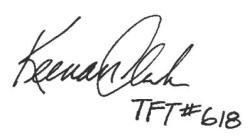 Keenan Clark
TFT#618